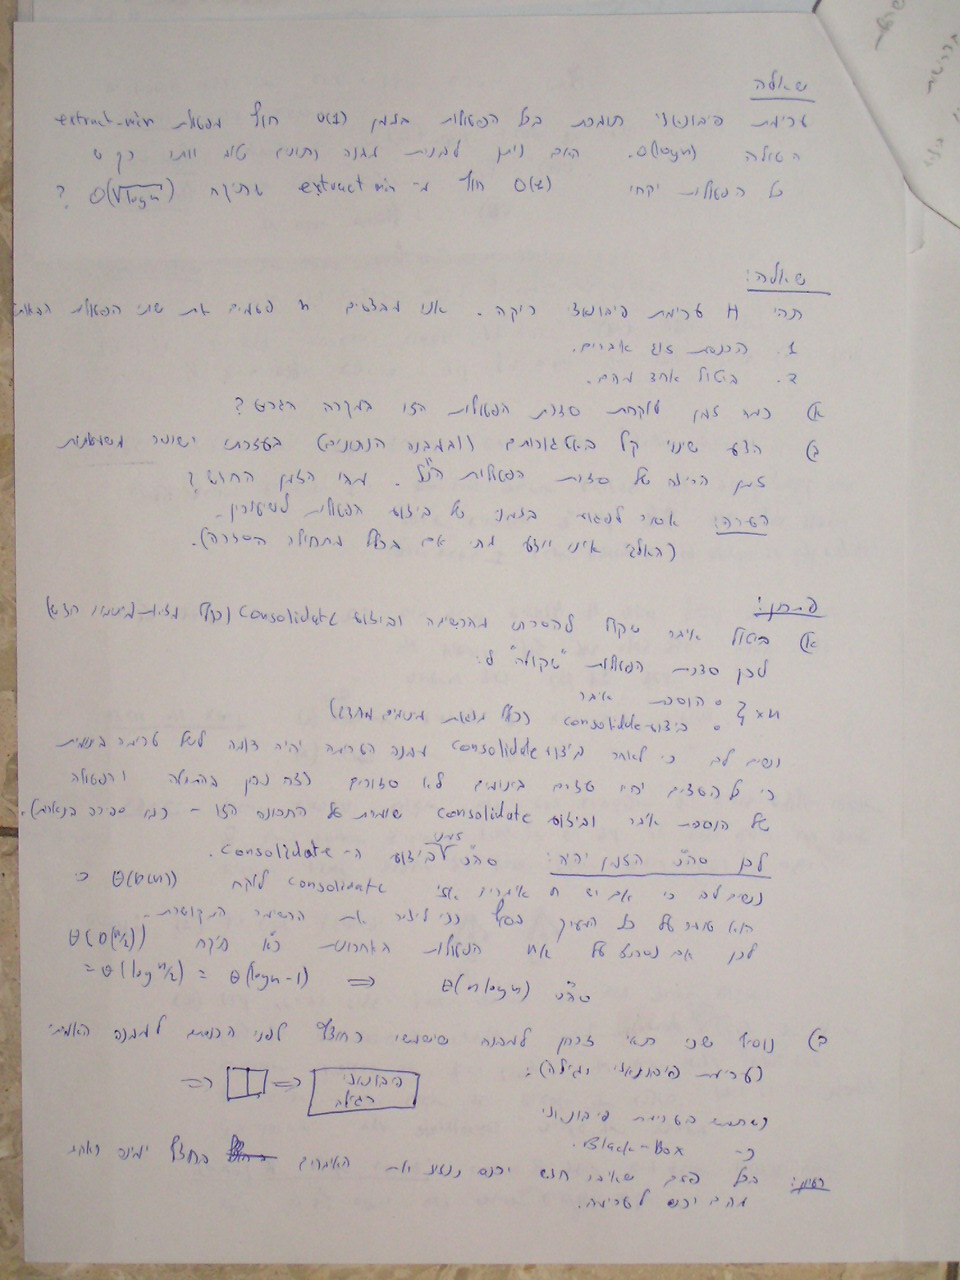 שאלה
ערימת פיבונאצי תומכת בכל הפעולות בזמן O(1) חוץ מפעולת extract-min
העולה O(logn). האם ניתן לבנות מבנה נתונים טוב יותר כך ש
כל הפעולות יקחו O(1) חוץ מ- extract min שתיקח O(√logn) ?
שאלה:
תהי H ערימת פיבונאצי ריקה. אנו מבצעים n פעמים את שתי הפעולות הבאות
1. הכנסת זוג אברים.
2. ביטול אחד מהם.
א) כמה זמן לוקחת סדרת הפעולות הזו במקרה הגרוע?
ב) הצע שינוי קל באלגוריתמים (ובמבנה הנתונים) בעזרתו ישופר משמעותית
זמן הריצה של סדרת הפעולות הנ"ל. מהו הזמן החדש?
הערה: אסור לפגוע בזמני של ביצוע הפעולות לשיעורין.
(האלג' אינו יודע מתי אם בכלל מתחילה הסדרה).
פתרון:
א) ביטול איבר שקול להסרתו מהרשימה וביצוע Consolidate (כולל מציאת מינימום חדש)
לכן סדרת הפעולות "שקולה" ל:
• הוספת איבר
• ביצוע consolidate (כולל מציאת מינימום מחדש) } ×n
נשים לב כי לאחר ביצוע consolidate מבנה הערימה יהיה דומה לשל ערימה בינומית
כי כל העצים יהיו עצים בינומים לא סדורים וזה נכון בהתחלה והפעולה
של הוספת איבר וביצוע consolidate שומרת על התכונה הזו - כמו ספירה בינארית).
לכן סה"כ הזמן יהיה: סה"כ זמני ביצוע ה- Consolidate.
נשים לב כי אם יש n איברים אזי consolidate לוקח Θ(D(n)) כי
הוא עובר על כל המערך בסוף כדי ליצור את הרשימה המקושרת.
לכן אם נסתכל על n/2 הפעולות האחרונות כ"א תיקח Θ(D(n/2))
=Θ(log n/2) = Θ(logn-1) ⇒ סה"כ Θ(nlogn)
ב) נוסיף שני תאי זכרון למבנה שישמשו כחוצץ לפני הכנסה למבנה האמיתי
(ערימת פיבונאצי רגילה):
פיבונאצי
רגילה
(נשתמש בערימת פיבונאצי
כ- Black-Box.
רעיון: בכל פעם שאיבר חדש יכנס נכניס את האיברים בחוצץ ימינה ואחד
מהם יכנס לערימה.